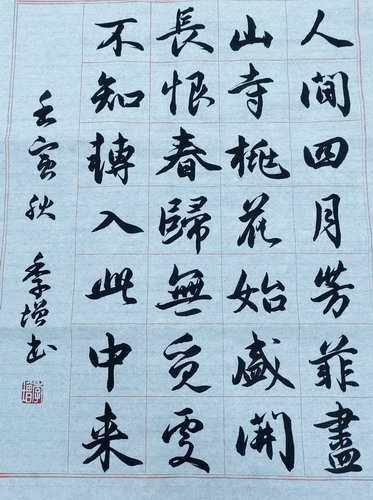 人間四月芳菲盡
山寺桃花始盛開
長恨春歸無覓處
不知轉入此中来
壬寅秋 季增书